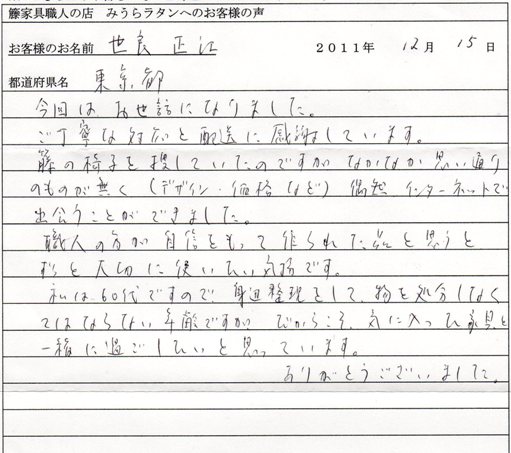 籐家具職人の店　みうらラタンへのお客様の声
お客様のお名前　世良 正江　2011年 12月 15日
都道府県名　東京都
今回は、お世話になりました。
ご丁寧な対応と配送に感謝しています。
籐の椅子を捜していたのですがなかなか思い通り
のものが無く（デザイン・価格など）偶然インターネットで
出会うことができました。
職人の方が自信をもって作られた品と思うと
ずっと大切に使いたい気持です。
私は、60代ですので、身辺整理をして、物を処分しなく
てはならない年齢ですが、だからこそ、気に入った家具と
一緒に過ごしたいと思っています。
ありがとうございました。